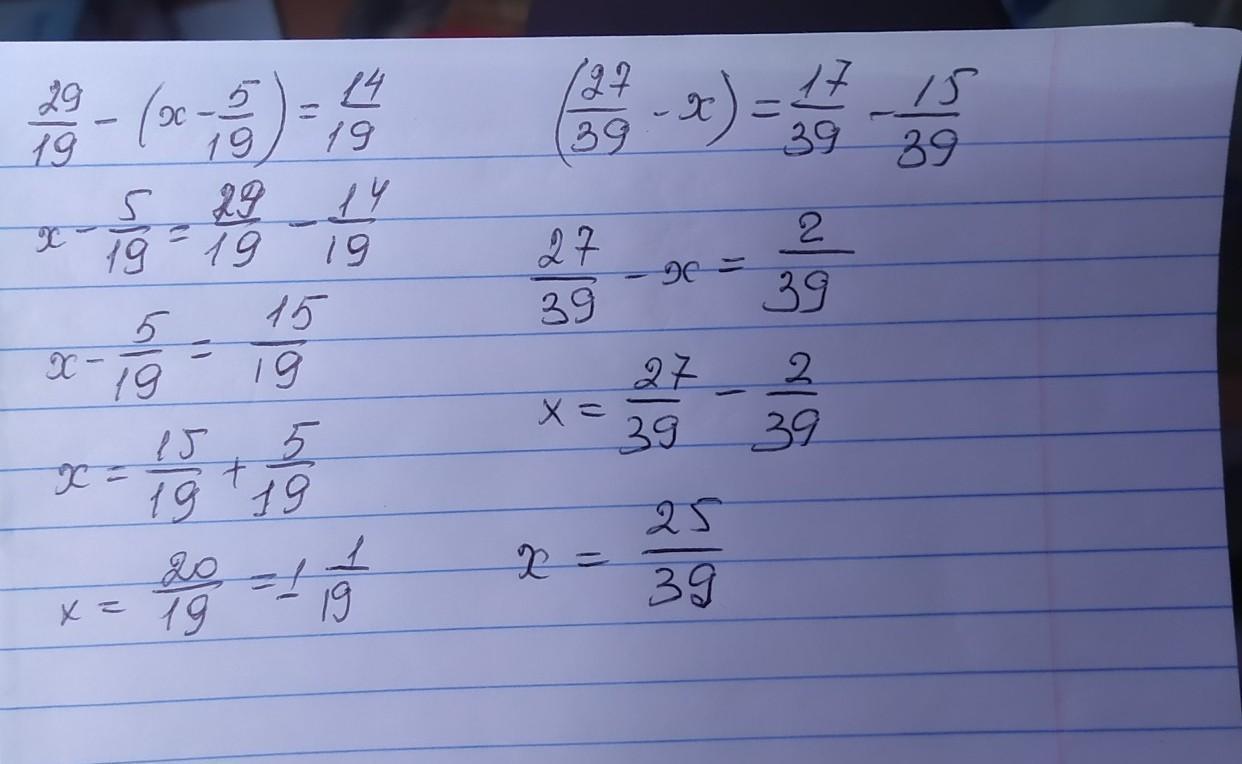 29/19 - (x - 5/19) = 14/19
x - 5/19 = 29/19 - 14/19
x - 5/19 = 15/19
x = 15/19 + 5/19
x = 20/19 = 1 1/19
(27/39 - x) = 17/39 - 15/39
27/39 - x = 2/39
x = 27/39 - 2/39
x = 25/39